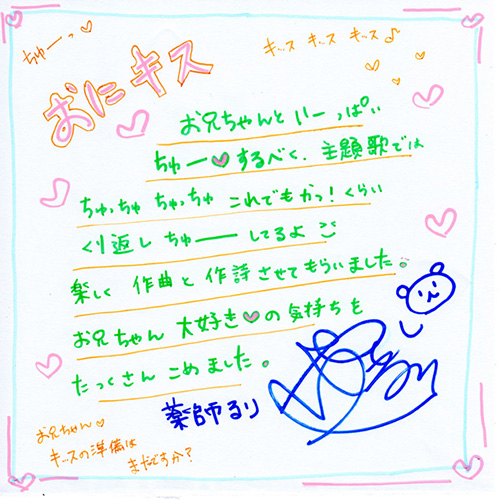 ちゅーっ♡
キッス キッス キッス♪
おにキス
お兄ちゃんと いーっぱい
ちゅー♥するべく、主題歌では
ちゅっちゅ ちゅっちゅ これでもかっ！くらい
くり返し ちゅーーしてるよ
楽しく 作曲と 作詩させてもらいました。
お兄ちゃん 大好き♥の 気持ちを
たっくさん こめました。
薬師るり
お兄ちゃん♡
キッスの準備は
まだですか？